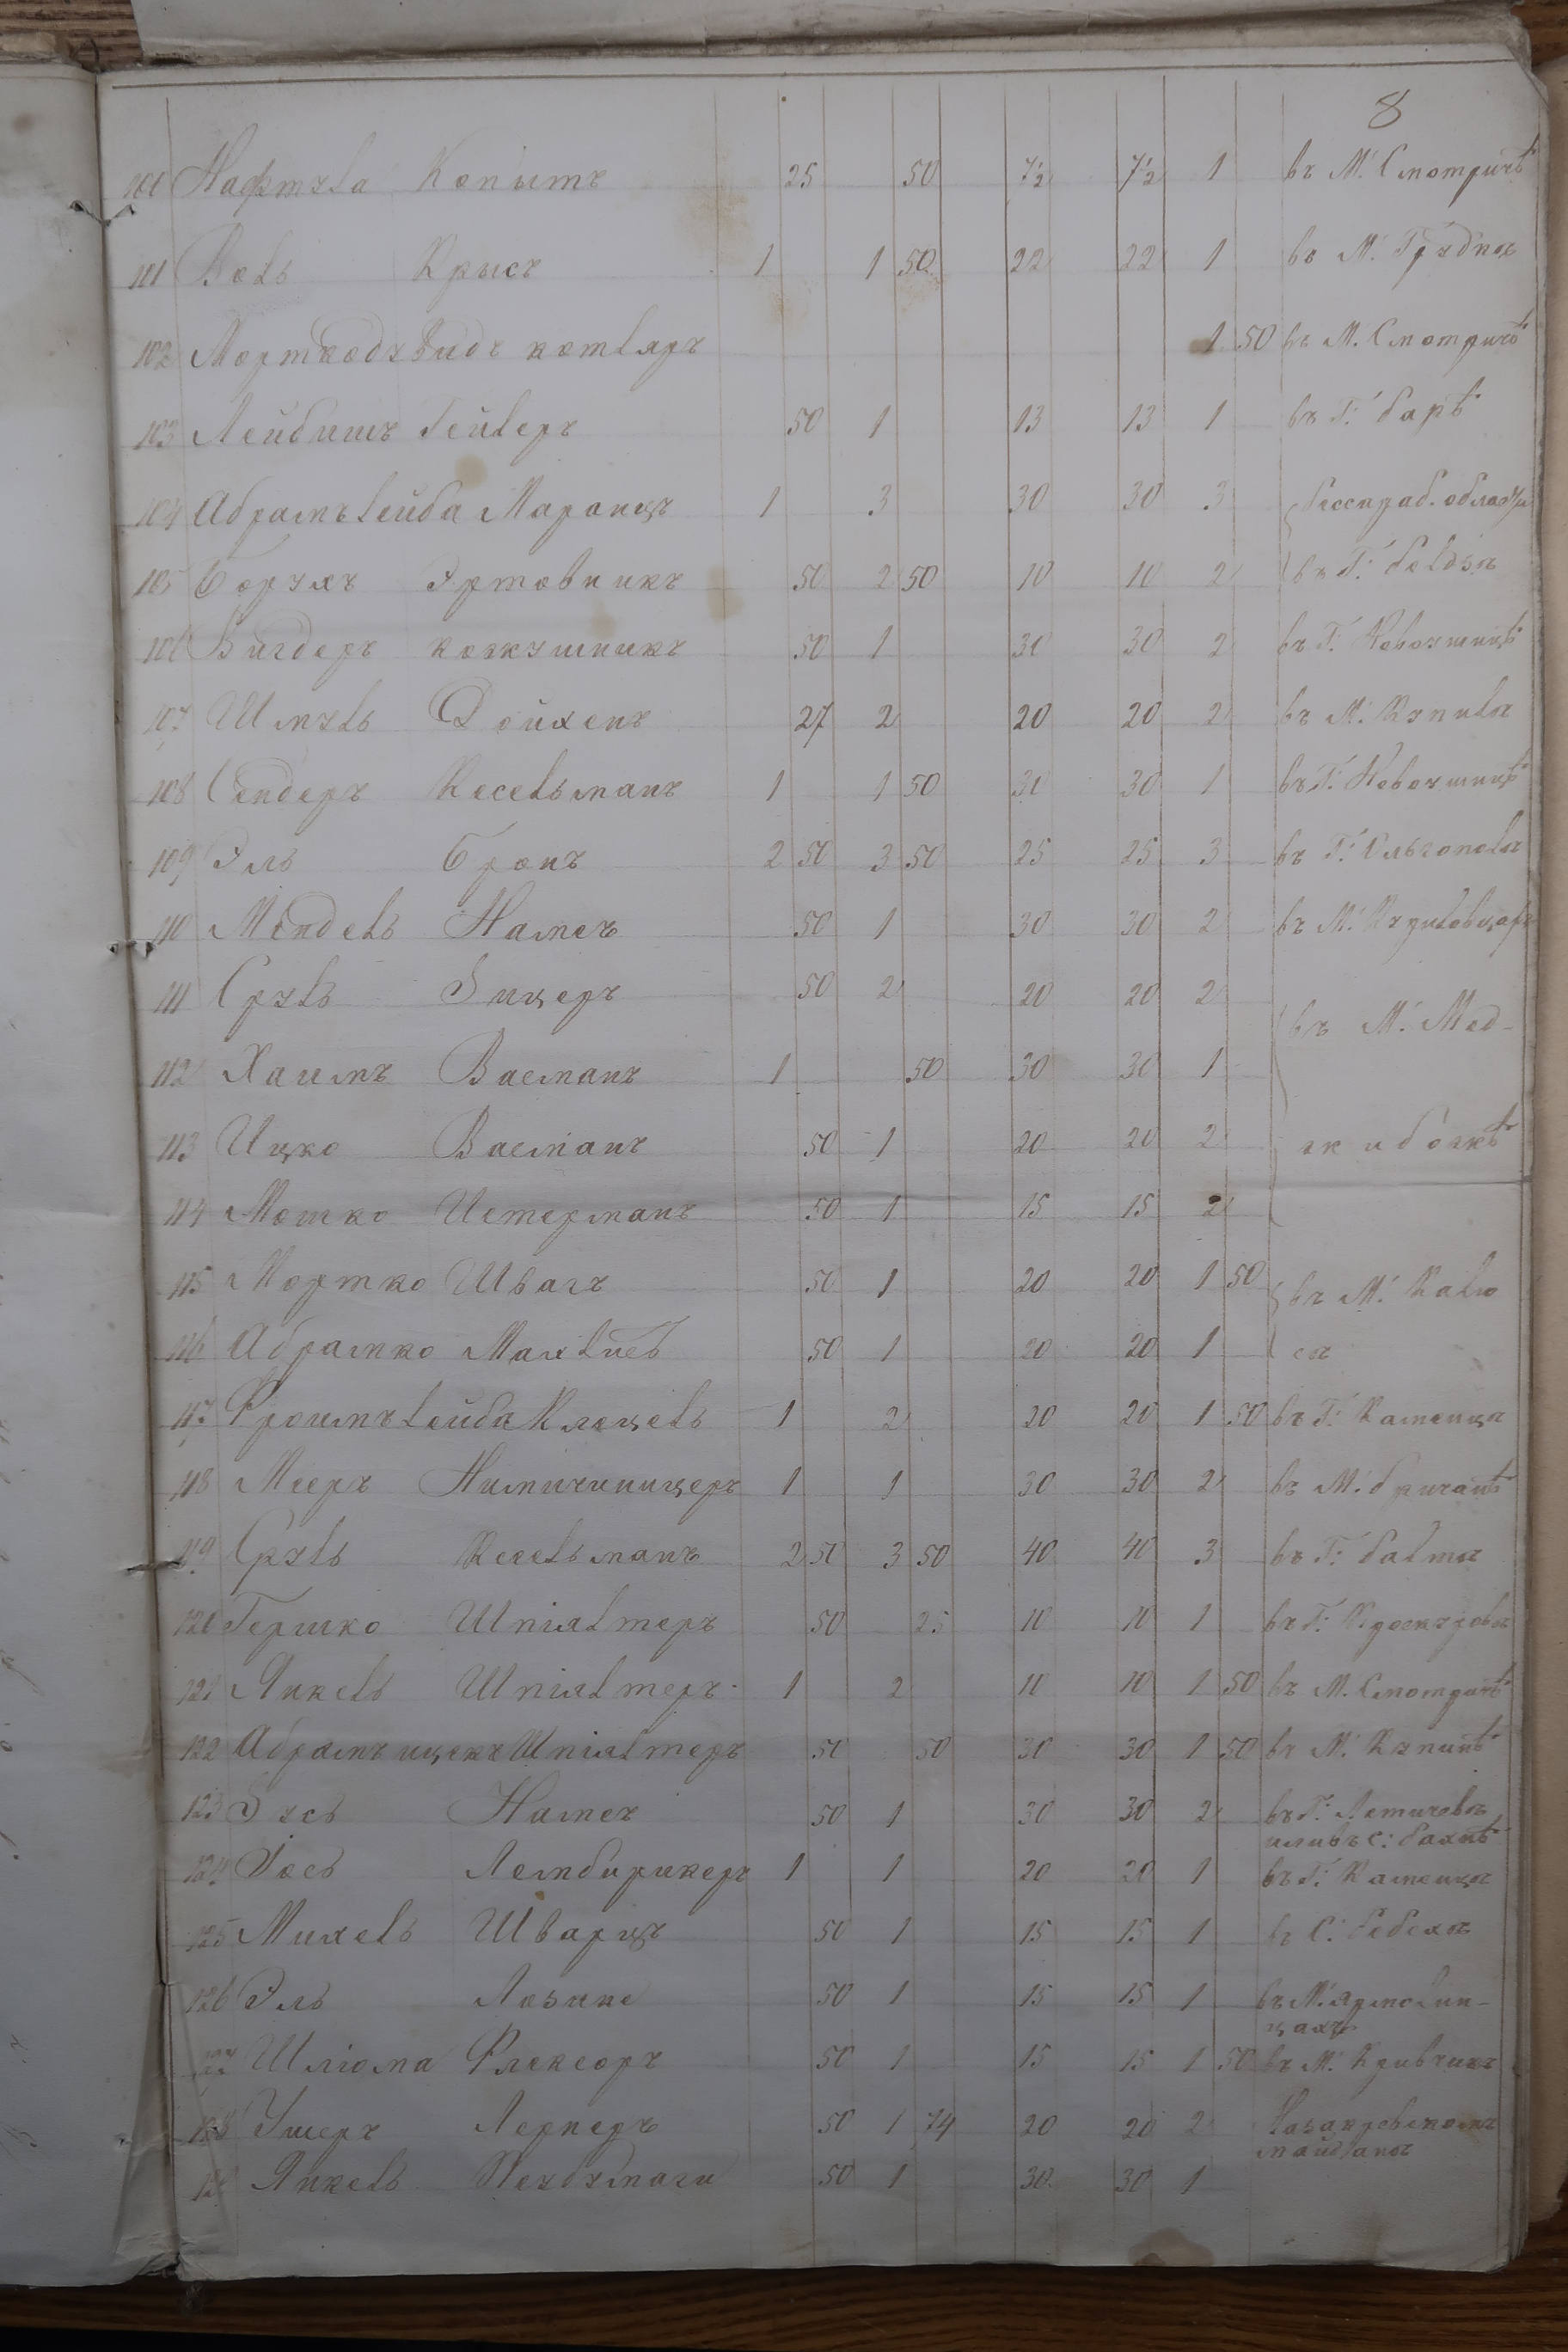 8
100 Нафтула Копытъ 25 50 7½ 7½ 1 въ М. Смотричѣ
101 Волъ Крысъ 1 1 50 22 22 1 въ М.
102 Мортко котляръ 1 50 въ М. Смотричѣ
103 Лейбишъ Гейлеръ 50 1 13 13 1 въ Г. барѣ
104 Абрамъ лейба Маранцъ 1 3 30 30 3 бессараб. области
105 Борухъ Эртовникъ 50 2 50 10 10 2 въ Г. белдзя
106 Вигдеръ кожушникъ 50 1 30 30 2 въ Г. Новоушицѣ
107 Шмулъ Дойхенъ 27 2 20 20 2 въ М. Купила
108 Сендеръ Кесельманъ 1 1 50 30 30 1 въ Г. Новоушицѣ
109 Эль бронъ 2 50 3 50 25 25 3 въ Г. Ольгопола
110 Мендель Намеръ 50 1 30 30 2 въ М.
111 Срулъ Зицеръ 50 2 20 20 2
въ М. Мед-
112 Хаимъ Васманъ 1 50 30 30 1
113 Ицко Васманъ 50 1 20 20 2
жибожѣ
114 Мошко Истерманъ 50 1 15 15 2
115 Мортко Швагъ 50 1 20 20 1 50 въ М. Калю
116 Абрамко 50 1 20 20 1 ся
117 Фроимъ лейба 1 2 20 20 1 50 въ Г. Каменца
118 Мееръ Нимичиницеръ 1 1 30 30 2 въ М. бричанѣ
119 Срулъ Кесельманъ 2 50 3 50 40 40 3 въ Г. балта
120 Гершко Шпіялтеръ 50 25 10 10 1 въ Г. Проскурова
121 Янкель Шпіялтеръ 1 2 10 10 1 50 въ М. Смотричѣ
122 Абрамъ ицекъ Шпіялтеръ 50 50 30 30 1 50 въ М. Купинѣ
123 Зусь Намеръ 50 1 30 30 2 въ Г. Летичева
или въ с:
124 Іось Лембирикеръ 1 1 20 20 1 въ Г. Каменца
125 Михель Шварцъ 50 1 15 15 1 въ С.
126 Эль Лозике 50 1 15 15 1 въ М. Ярмолин-
цахъ
127 Шліома Флексоръ 50 1 15 15 1 50 въ М. Кривчикъ
128 Ушеръ Лернеръ 50 1 74 20 20 2
майдана
129 Янкель 50 1 30 30 1